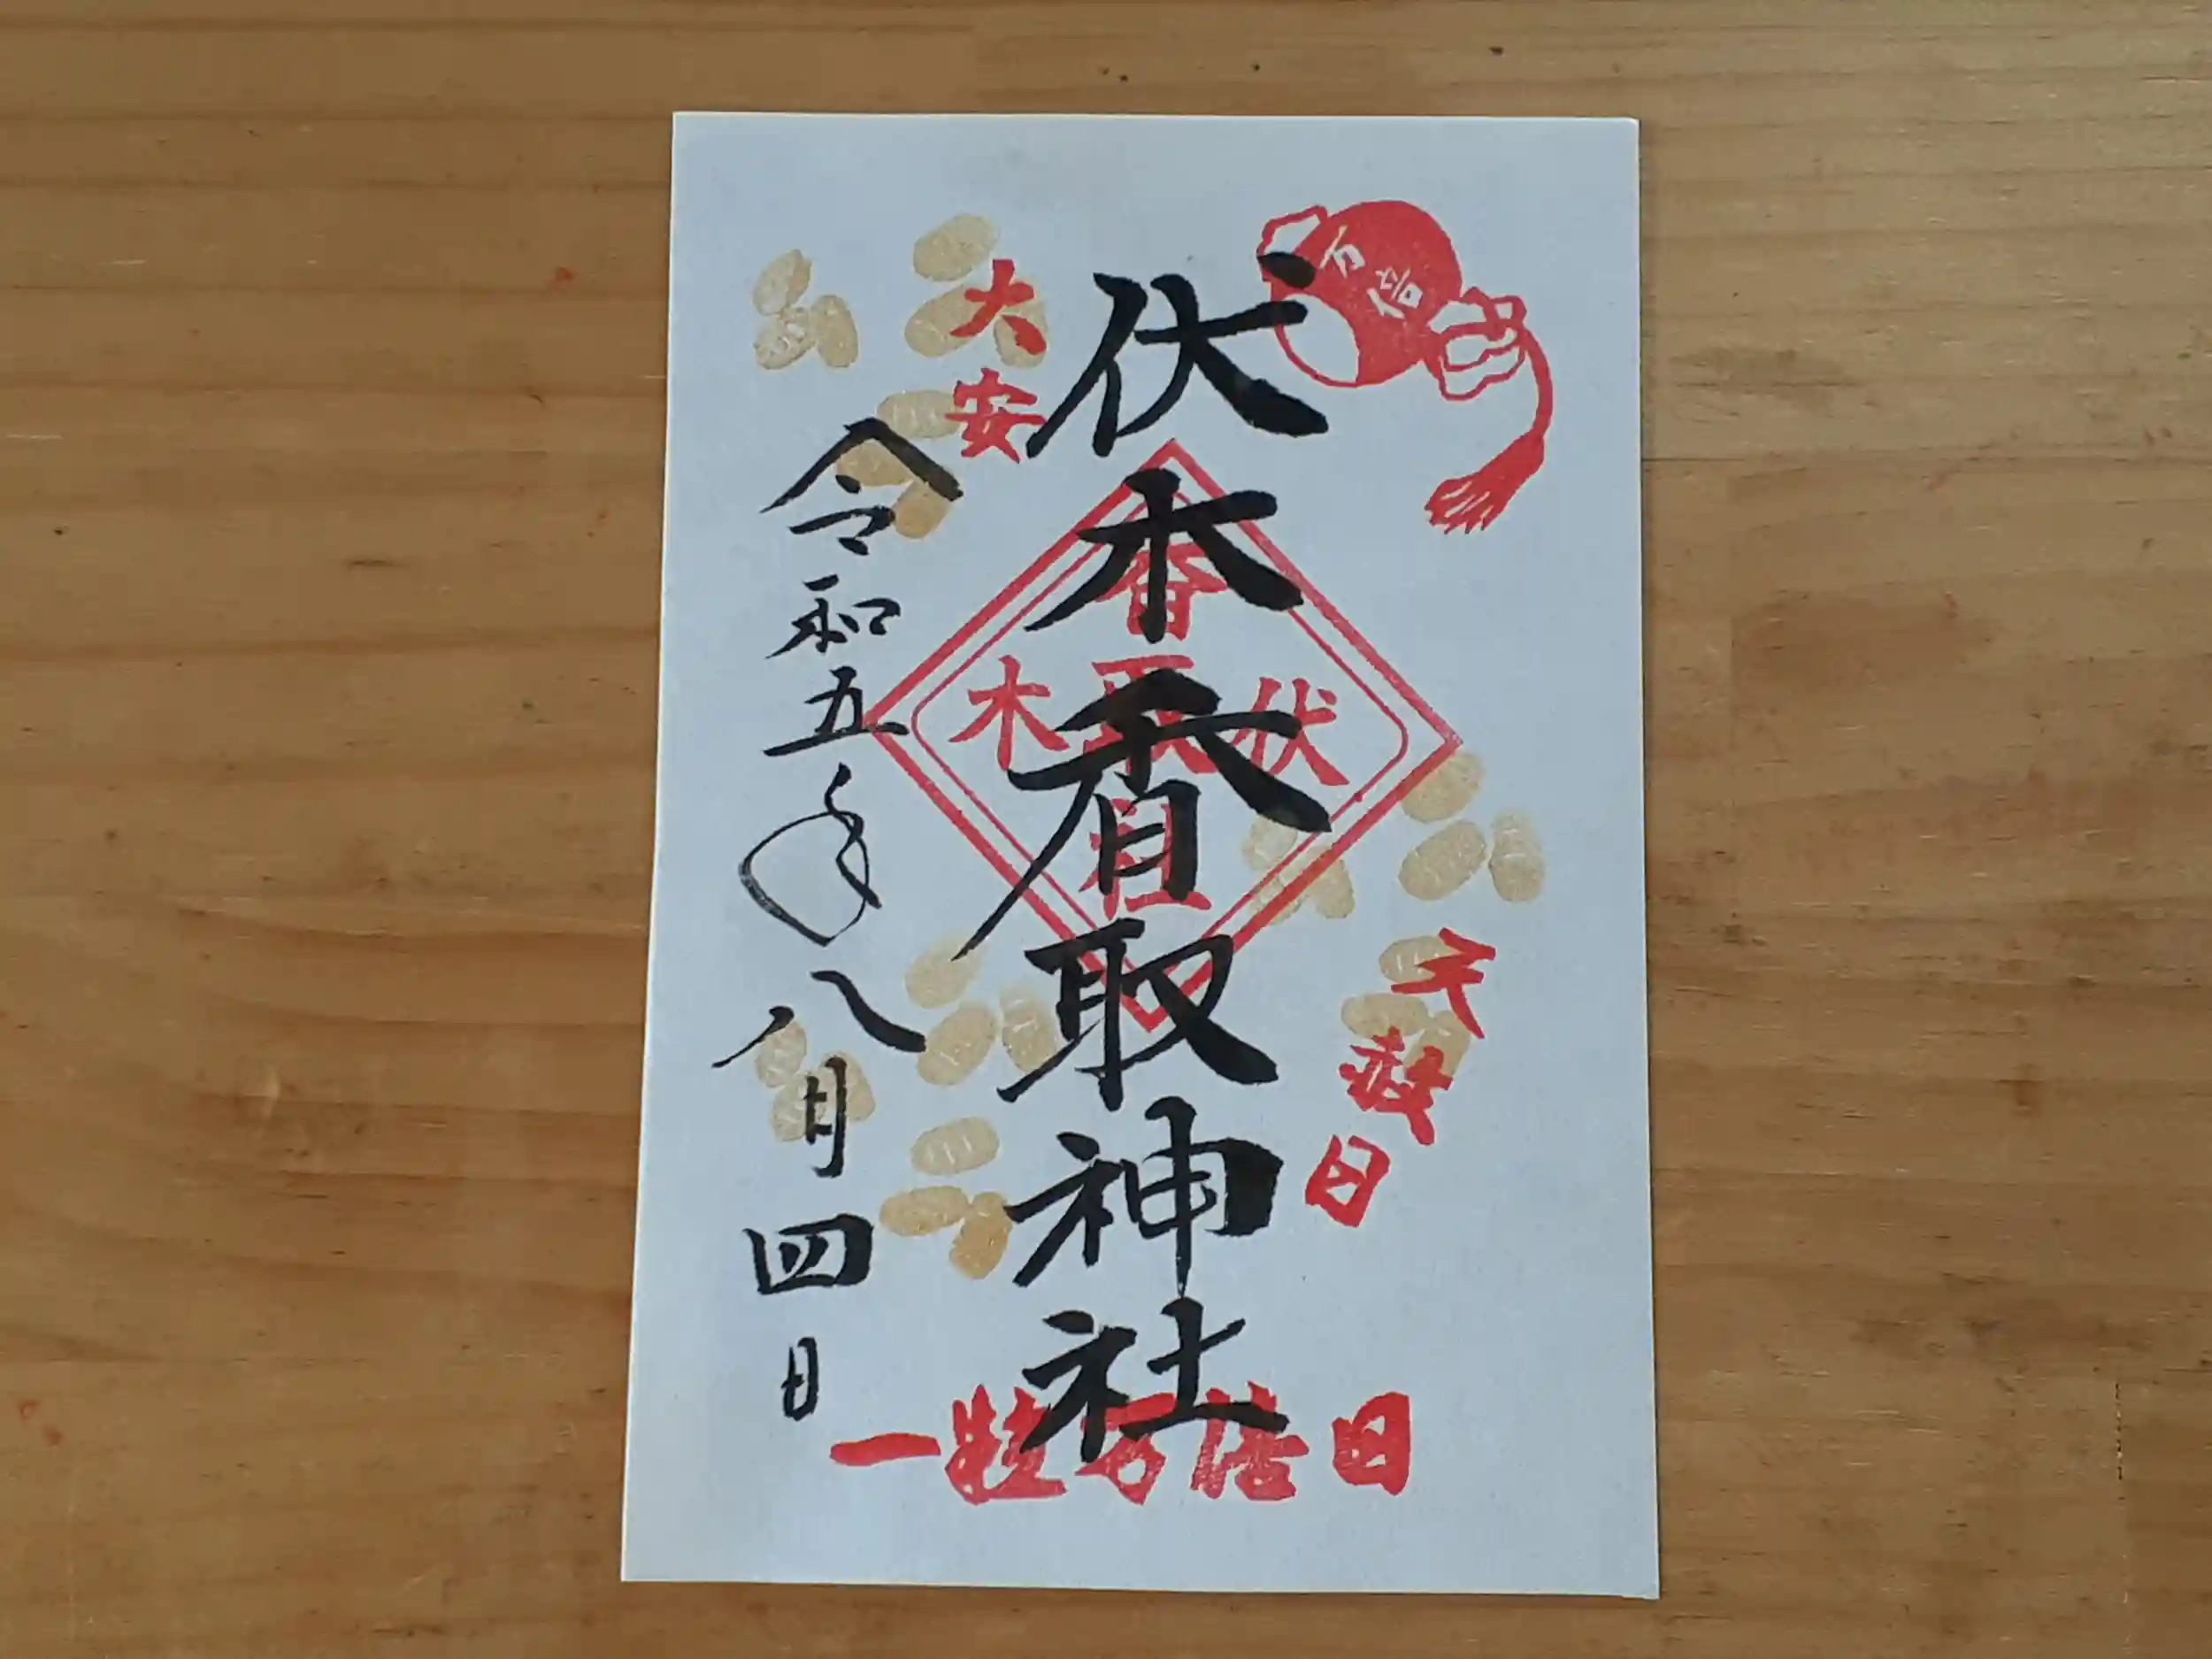 万倍
伏木香取神社
香
木取伏
社
天赦日
大安
令和五年八月四日
一粒万倍日